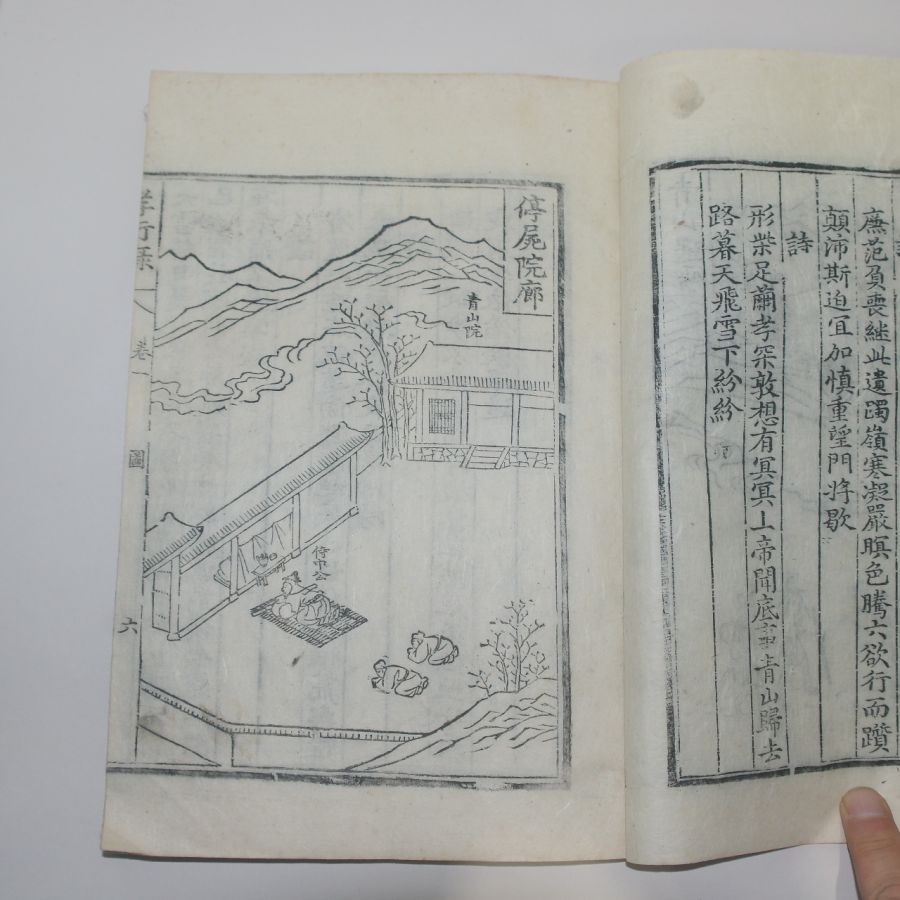 廉范負喪繼此遺躅嶺寒凝嚴暝色騰六欲行而躓
顛沛斯迫宜加愼重望門將歇
詩
形柴足繭孝罙敦想有冥冥上帝聞底事青山歸去
路暮天飛雪下紛紛
停屍院廊
青山院
侍中公
孝行錄
卷一
圖
六